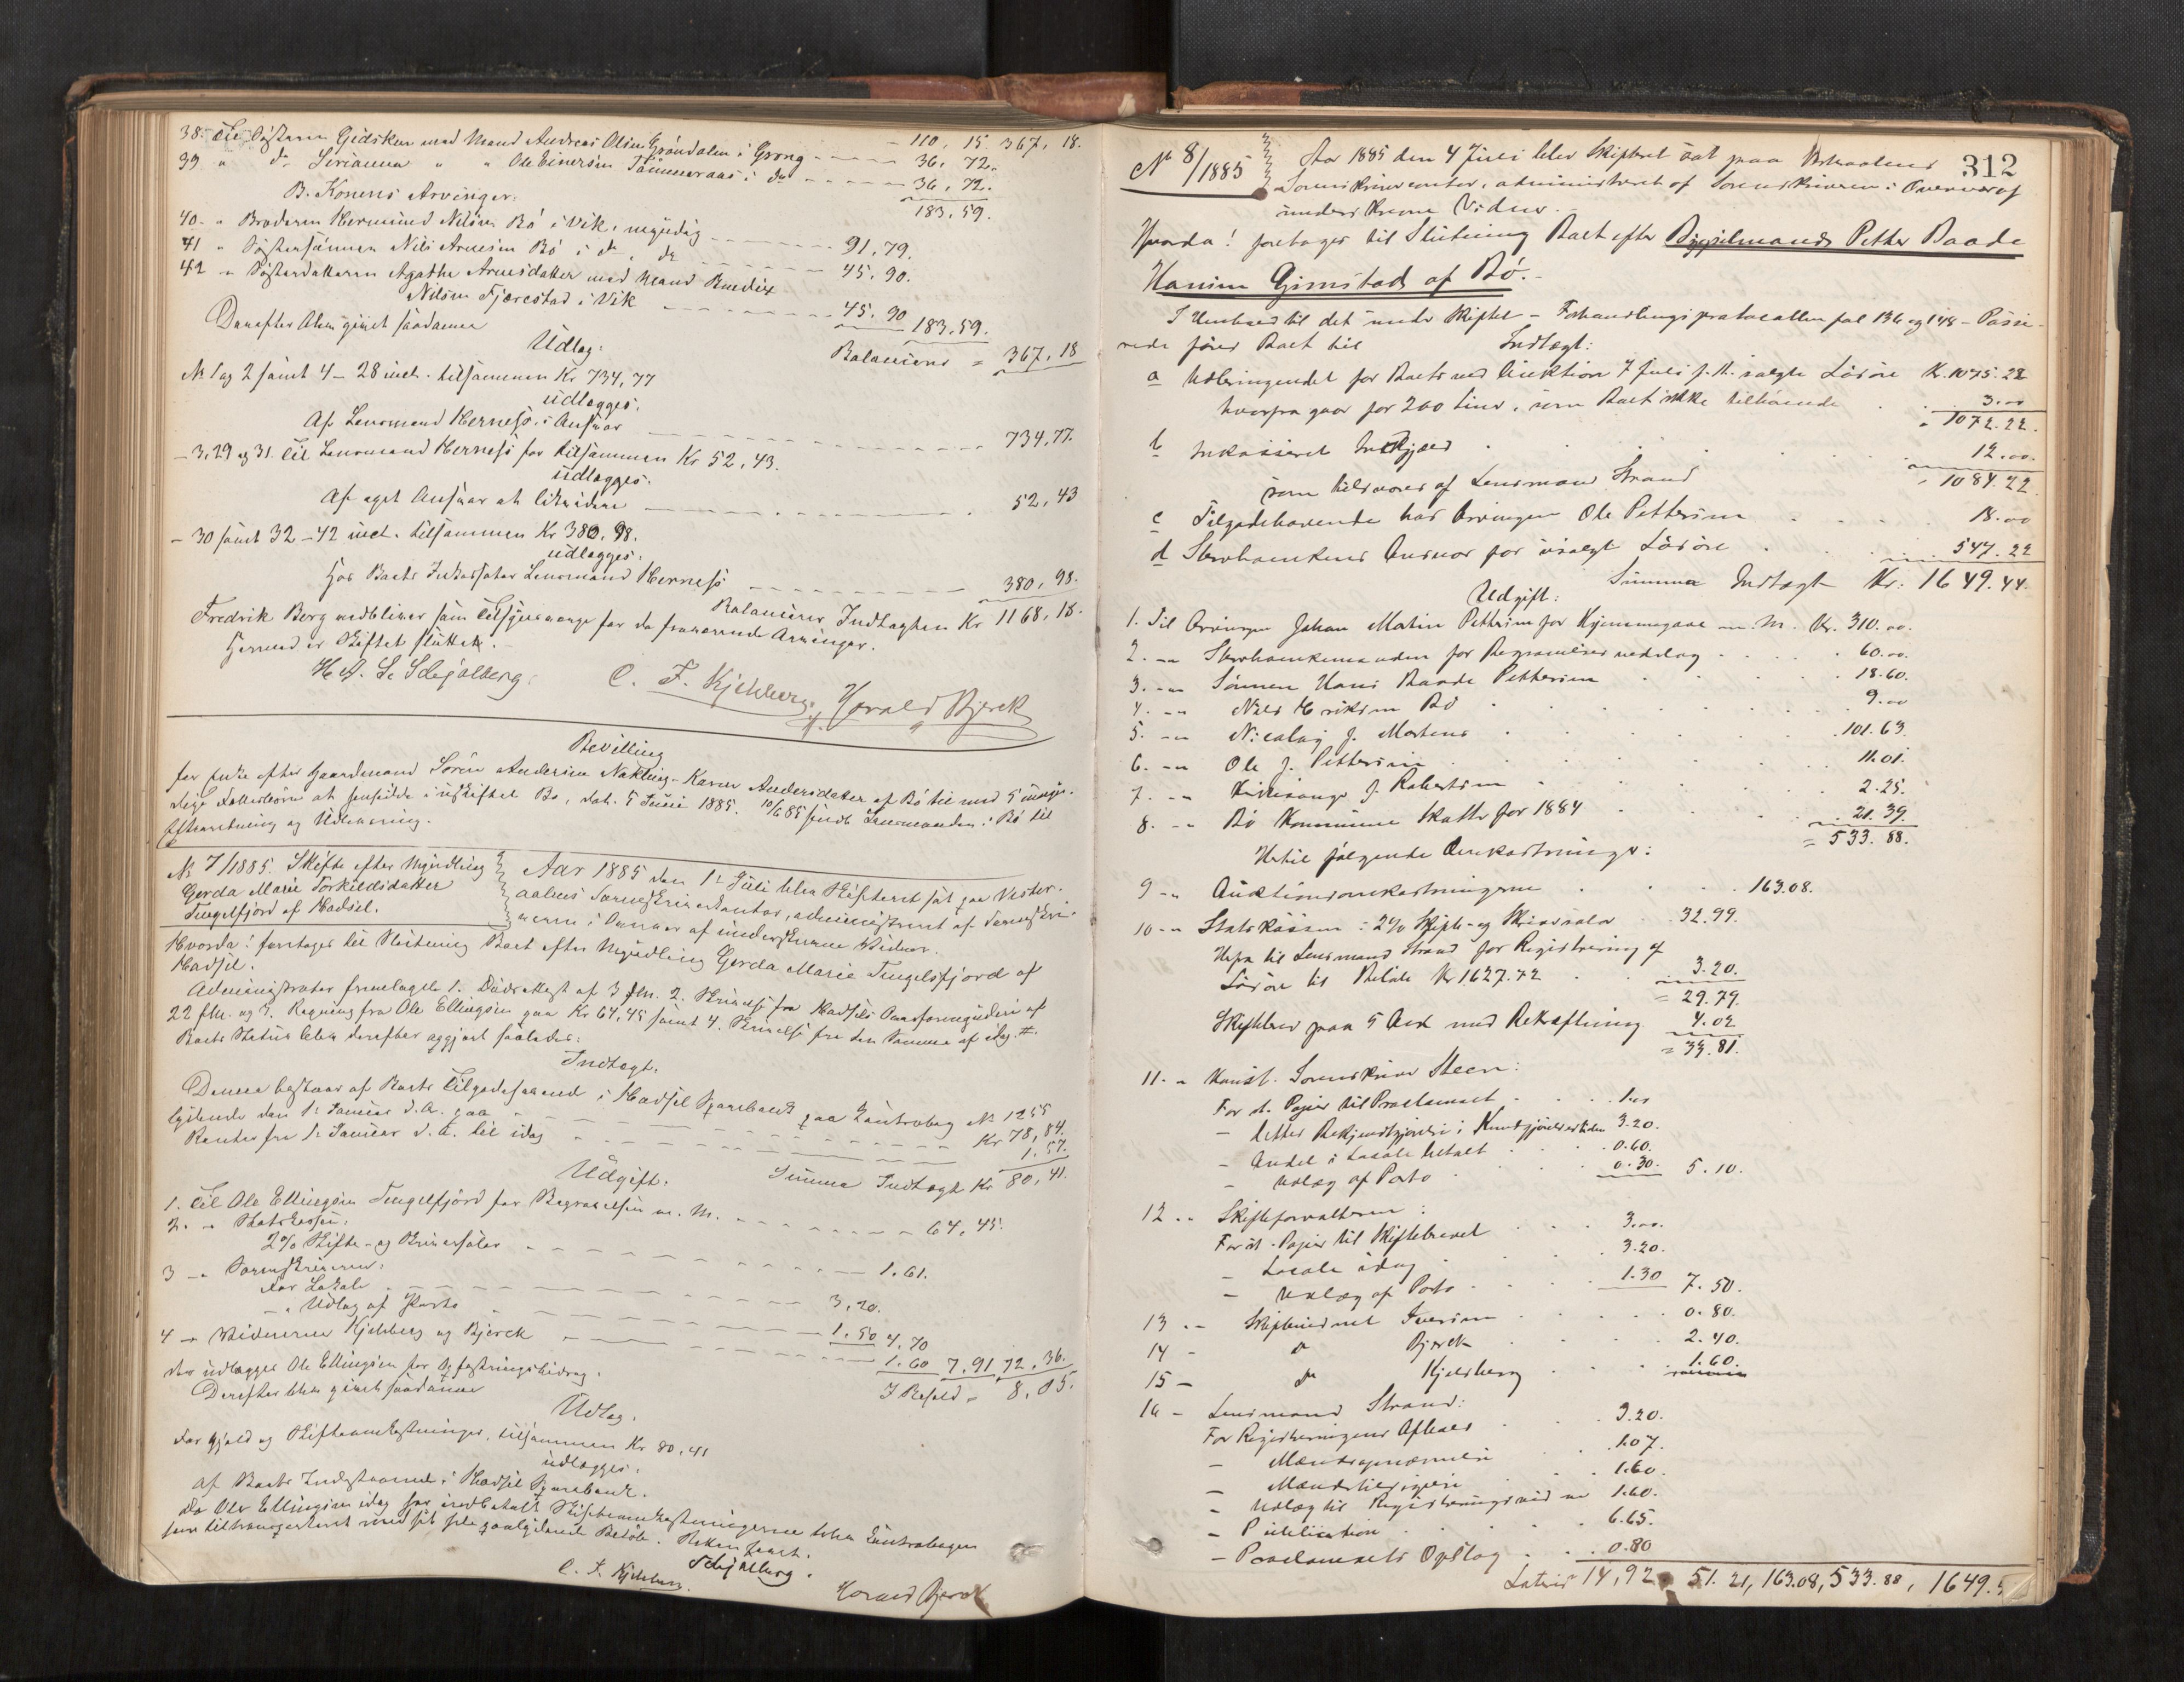 38. Til Søsteren Gidsken med Mand Andreas Olsen Grøndalen i Grong - - - 110, 15. 367, 18.
36, 72.
39 " do Serianna " " Ole Einersen Tømmeraas i do - - - - - 36, 72.
183, 59.
B. Konens Arvinger:
40 - " Broderen Hermund Nilsen Bø i Vik, myndig - - - - - - 91, 79.
41 " Søstersønnen Nils Arnesen Bø i do, do - - - - - - 45, 90.
42 " Søsterdatteren Agathe Arnesdatter med Mand Benedix
Nilsen Fjærestad i Vik - - - - - - 45, 90 183, 59.
Balancerer = 367, 18
Derefter blev givet saadanne
Udlæg:
No 1 og 2 samt 4 - 28 incl. tilsammen Kr 734, 77
udlægges:
Af Lensmand Hernesø's Ansvar - - - - - - 734, 77.
- 3, 29 og 31. til Lensmand Hernesø for tilsammen Kr 52, 43.
udlægges:
Af eget Ansvar at likvidere - - - - 52, 43
- 30 samt 32 - 42 incl. tilsammen Kr 380, 98.
udlægges:
Hos Boets Inkassator Lensmand Hernesø - - - - 380, 98.
Balancerer Indtægten Kr 1168, 18.
Fredrik Berg vedbliver som Tilsynsværge for de fraværende Arvinger.
Hermed er Skiftet sluttet.
C. F. Kjeldberg. Harald Bjerck
Bevilling
for Enke efter Gaardmand Søren Andersen Nykling - Karen Andersdatter af Bø til med 5 umyn-
dige Fællesbørn at hensidde i uskiftet Bo, dat. 5 Juni 1885. 10/6 85 sendt Lensmanden i Bø til
Efterretning og Udlevering.
No 7/1885. Skifte efter Myndling
Gerda Marie Torkildsdatter
Tengelfjord af Hadsel.
Aar 1885 den 1ste Juli blev Skifteret sat paa Vester-
aalens Sorenskriverkontor, administreret af Sorenskri-
veren i Overvær af underskrevne Vidner.
Hvorda! foretoges til Slutning Boet efter Myndling Gerda Marie Tengelsfjord af
Hadsel.
Administrator fremlagde 1. Dødsattest af 3 f.M. 2. Skrivelse fra Hadsels Overformynderi af
22 f.M. og 3. Regning fra Ole Ellingsen paa Kr 64, 45 samt 4. Skrivelse fra den Samme af idag.
Boets Status blev derefter opgjort saaledes:
Indtægt:
Denne bestaar af Boets Tilgodehavende i Hadsel Sparebank paa Contrabog No 1255
lydende den 1ste Januar d. A. paa - - - Kr 78, 84.
Renter fra 1ste Januar d. A. til idag - - - 1. 57.
Summa Indtægt Kr 80, 41.
Udgift:
1. Til Ole Ellingsen Tengelfjord for Begravelsen m. M. - - - 64, 45.
2. " Statskassen:
2% Skifte- og Skriversalær - - - 1. 61.
3 - " Sorenskriveren:
For Lokale - - - 3, 20.
- " Udlæg af Porto - - - 1. 50 4, 70
4 - " Vidnerne Kjeldberg og Bjerck - - - 1. 60 7, 91 72, 36.
I Behold = 8, 05.
der udlægges Ole Ellingsen for Opfostringsbidrag.
Derefter blev givet saadanne
Udlæg.
For Gjæld og Skifteomkostninger, tilsammen Kr 80, 41
udlægges:
af Boets Indestaaende i Hadsel Sparebank.
Da Ole Ellingsen idag har indbetalt Skifteomkostningerne blev Contrabogen
ham tiltransporteret med sit fulde paalydende Beløb. Retten hævet.
C. F. Kjeldberg. Schjølberg. Harald Bjerck
312
No 8/1885
Aar 1885 den 4 Juli blev Skifteret sat paa Vesteraalens
Sorenskrivercontor, administreret af Sorenskriveren i Overvær af
underskrevne Vidner.
Hvorda! foretoges til Slutning Boet efter Bygselmand Petter Baade
Hansen Gimstad af Bø.
I Henhold til det under Skiftet - Forhandlingsprotocollen fol 136 og 148 - Passe-
rede føres Boet til Indtægt:
a Udbringendet for Boets ved Auktion 7 Juli f. A. solgte Løsøre Kr. 1075. 22
hvorfra gaar for 200 Liner, som Boet ikke tilhørende . . 3.00
= 1072. 22.
b Inkasseret Indgjæld . . . . . 12.00.
som tilsvares af Lensmand Strand = 1084. 22.
c Tilgodehavende hos Arvingen Ole Pettersen . . . 18.00
d Stervboenkens Ansvar for usolgt Løsøre . . . 547. 22
Summa Indtægt Kr. 1649. 44.
Udgift:
1. Til Arvingen Johan Martin Pettersen for Hjemmegave m. M. Kr. 310.00.
2. - " Stervboenkemanden for Begravelses vedelag . . . 60.00.
3. - " Sønnen Hans Baade Pettersen . . . 18.60.
4. - " Nils Hendriksen Bø . . . 9.00
5. - " Nicolay J. Martens . . . 101. 63.
6. - " Ole J. Pettersen . . . 11.01.
7. - " J. Robertsen . . . 2. 25.
8. - " Bø Kommune Skatter for 1884 . . . 21. 39.
= 533. 88.
Hertil følgende Omkostninger:
9 - " Auktionsomkostningerne . . . 163.08.
10 - " Statskassen: 2% Skifte- og Skriversalær . . 32. 99.
Herfra til Lensmand Strand for Registrering af
Løsøre til Beløb Kr 1627. 72 . . 3. 20.
= 29. 79.
Skiftebrev paa 5 Ark med Bekræftning 4. 02
= 33. 81.
11. - " Const. Sorenskriver Steen:
For st. Papir til Proclamaet . . . 1.00
- dettes Bekjendtgjørelse i Kundgjørelsestiden 3. 20.
- Andel i Locale betalt . . . 0. 60.
- Udlæg af Porto . . . 0. 30. 5. 10.
12 . . Skifteforvalteren:
For st. Papir til Skiftebrevet . . . 3.00.
- Locale idag . . . 3. 20.
- Udlæg af Porto . . . 1. 30 7. 50.
13 . - Skiftevidnet Iversen . . . 0. 80.
14 - do Bjerck . . . 2. 40.
15 - do Kjeldberg . . . 1. 60.
16 - Lensmand Strand:
For Registreringens Afhold . . . 3. 20.
- Mændsopnævnelse . . . 1.07.
- Mændstilsigelse . . . 1.60.
- Udlæg til Registreringsvidne 1.60.
- Publication . . . 6. 65.
- Proclamaets Opslag . . . 0. 80
Lateris 14, 92 51. 21, 163.08, 533. 88, 1649.